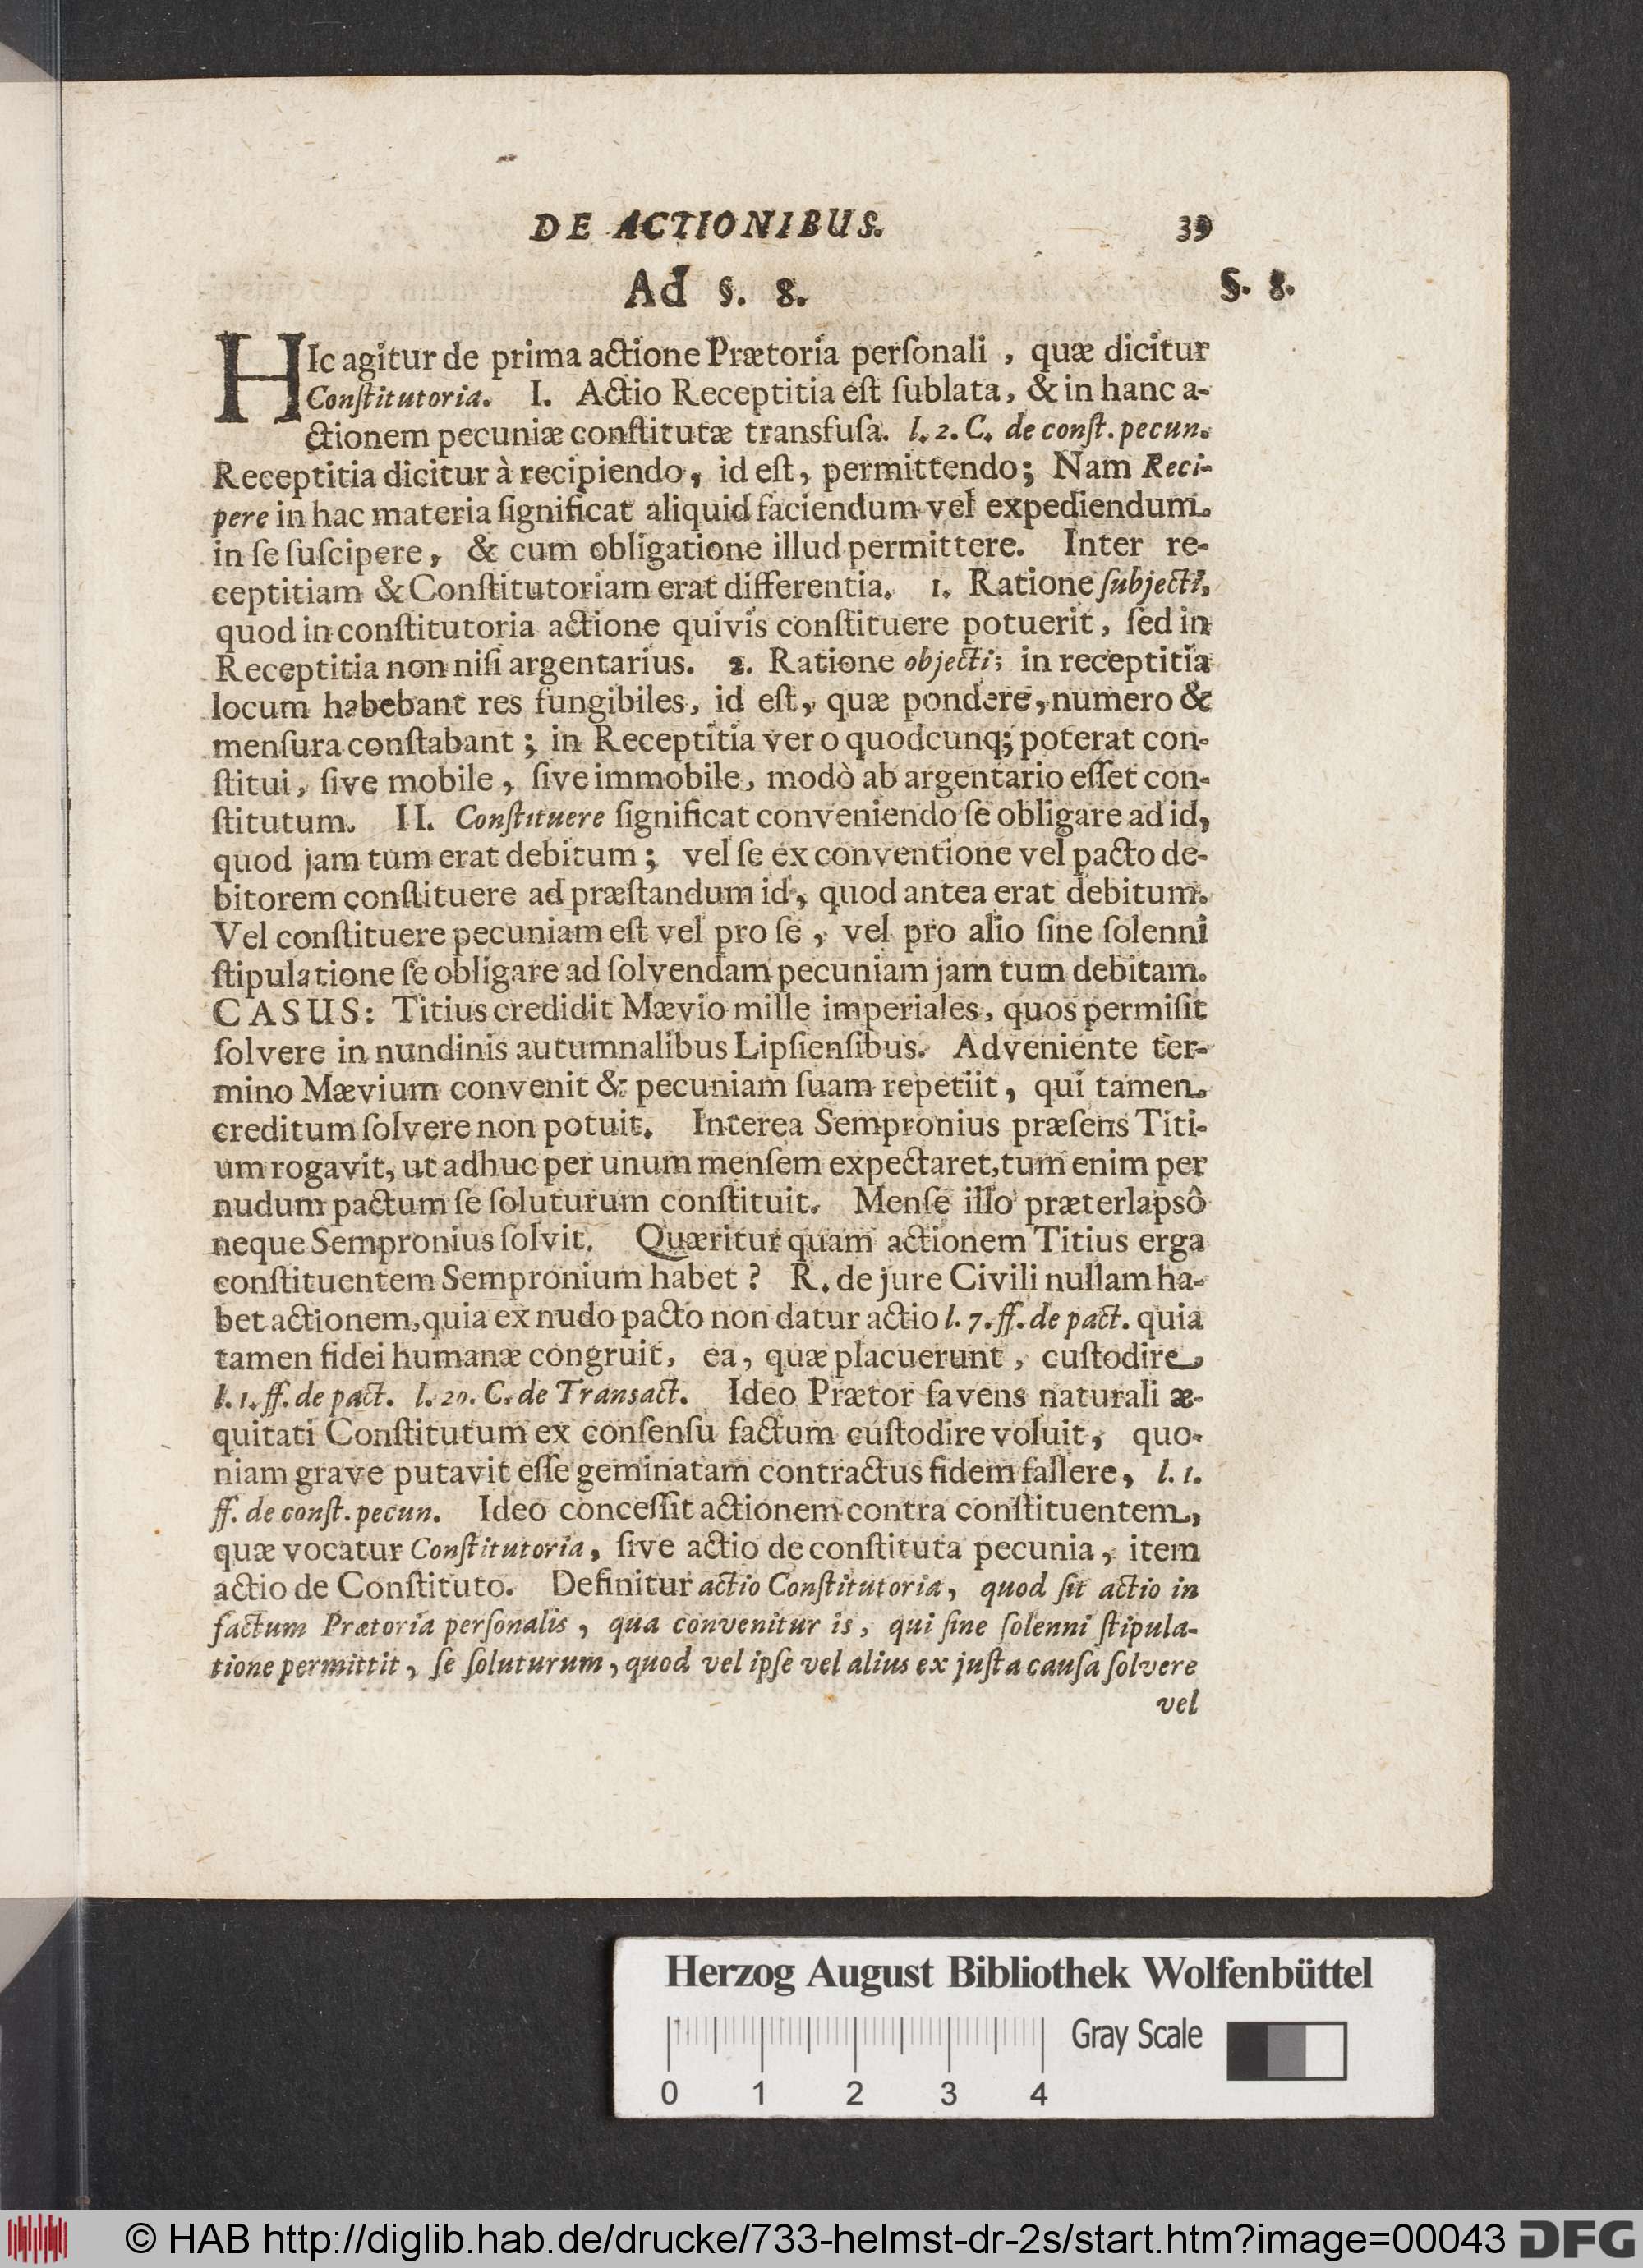 DE ACTIONIBUS. 39
Ad §. 8. §. 8.
HIc agitur de prima actione Prætoria perſonali, quæ dicitur
Conſtitutoria. I. Actio Receptitia eſt ſublata, & in hanc a-
ctionem pecuniæ conſtitutæ transfuſa. l. 2. C. de conſt. pecun.
Receptitia dicitur à recipiendo, id eſt, permittendo; Nam Reci-
pere in hac materia ſignificat aliquid faciendum vel expediendum
in ſe ſuſcipere, & cum obligatione illud permittere. Inter re-
ceptitiam & Conſtitutoriam erat differentia. 1. Ratione ſubjecti,
quod in conſtitutoria actione quivis conſtituere potuerit, ſed in
Receptitia non niſi argentarius. 2. Ratione objecti; in receptitia
locum habebant res fungibiles, id eſt, quæ pondere, numero &
menſura conſtabant; in Receptitia vero quodcunq; poterat con-
ſtitui, ſive mobile, ſive immobile, modò ab argentario eſſet con-
ſtitutum. II. Conſtituere ſignificat conveniendo ſe obligare ad id,
quod jam tum erat debitum; vel ſe ex conventione vel pacto de-
bitorem conſtituere ad præſtandum id, quod antea erat debitum.
Vel conſtituere pecuniam eſt vel pro ſe, vel pro alio ſine ſolenni
ſtipulatione ſe obligare ad ſolvendam pecuniam jam tum debitam.
CASUS: Titius credidit Mævio mille imperiales, quos permiſit
ſolvere in nundinis autumnalibus Lipſienſibus. Adveniente ter-
mino Mævium convenit & pecuniam ſuam repetiit, qui tamen
creditum ſolvere non potuit. Interea Sempronius præſens Titi-
um rogavit, ut adhuc per unum menſem expectaret, tum enim per
nudum pactum ſe ſoluturum conſtituit. Menſe illo præterlapsô
neque Sempronius ſolvit. Quæritur quam actionem Titius erga
conſtituentem Sempronium habet? R. de jure Civili nullam ha-
bet actionem, quia ex nudo pacto non datur actio l. 7. ff. de pact. quia
tamen fidei humanæ congruit, ea, quæ placuerunt, cuſtodire,
l. 1. ff. de pact. l. 20. C. de Transact. Ideo Prætor favens naturali æ-
quitati Conſtitutum ex conſenſu factum cuſtodire voluit, quo-
niam grave putavit eſſe geminatam contractus fidem fallere, l. 1.
ff. de conſt. pecun. Ideo conceſſit actionem contra conſtituentem,
quæ vocatur Conſtitutoria, ſive actio de conſtituta pecunia, item
actio de Conſtituto. Definitur actio Conſtitutoria, quod ſit actio in
factum Prætoria perſonalis, qua convenitur is, qui ſine ſolenni ſtipula-
tione permittit, ſe ſoluturum, quod vel ipſe vel alius ex juſta cauſa ſolvere
vel
Herzog August Bibliothek Wolfenbüttel
Gray Scale
0 1 2 3 4
© HAB http://diglib.hab.de/drucke/733-helmst-dr-2s/start.htm?image=00043 DFG